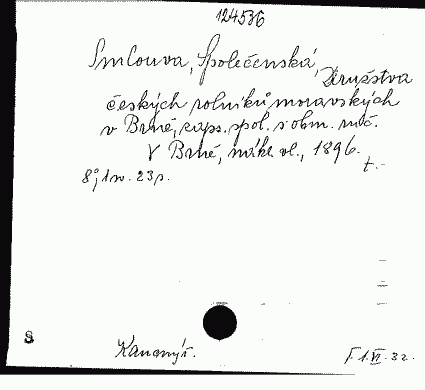 124536
Smlouva, Společenská, Družstva
českých rolníků moravských
v Brně, zaps. spol. s obm. ruč.
V Brně, nákl. vl., 1896.
t.-
8°, 1 n. 23 s.
S